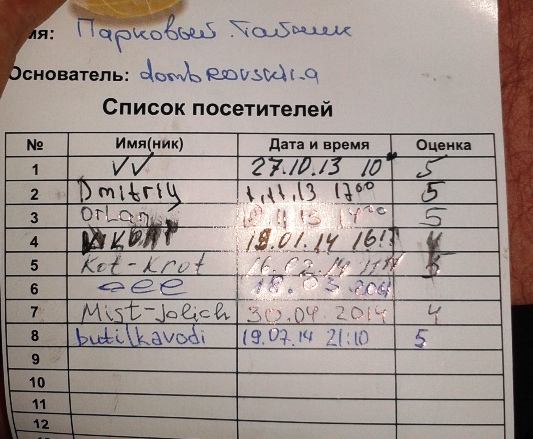 мя: Парковый Тайник
Основатель: dombrovskii.a
Список посетителей
№ Имя(ник) Дата и время Оценка
1 VV 27.10.13 10 5
2 Dmitriy 1.11.13 17⁰⁰ 5
3 Orlan 5
4 18.01.14 4
5 Kot-Krot 5
6
7 Mist-jolich 30.04.2014 4
8 butilkavodi 19.07.14 21:10 5
9
10
11
12